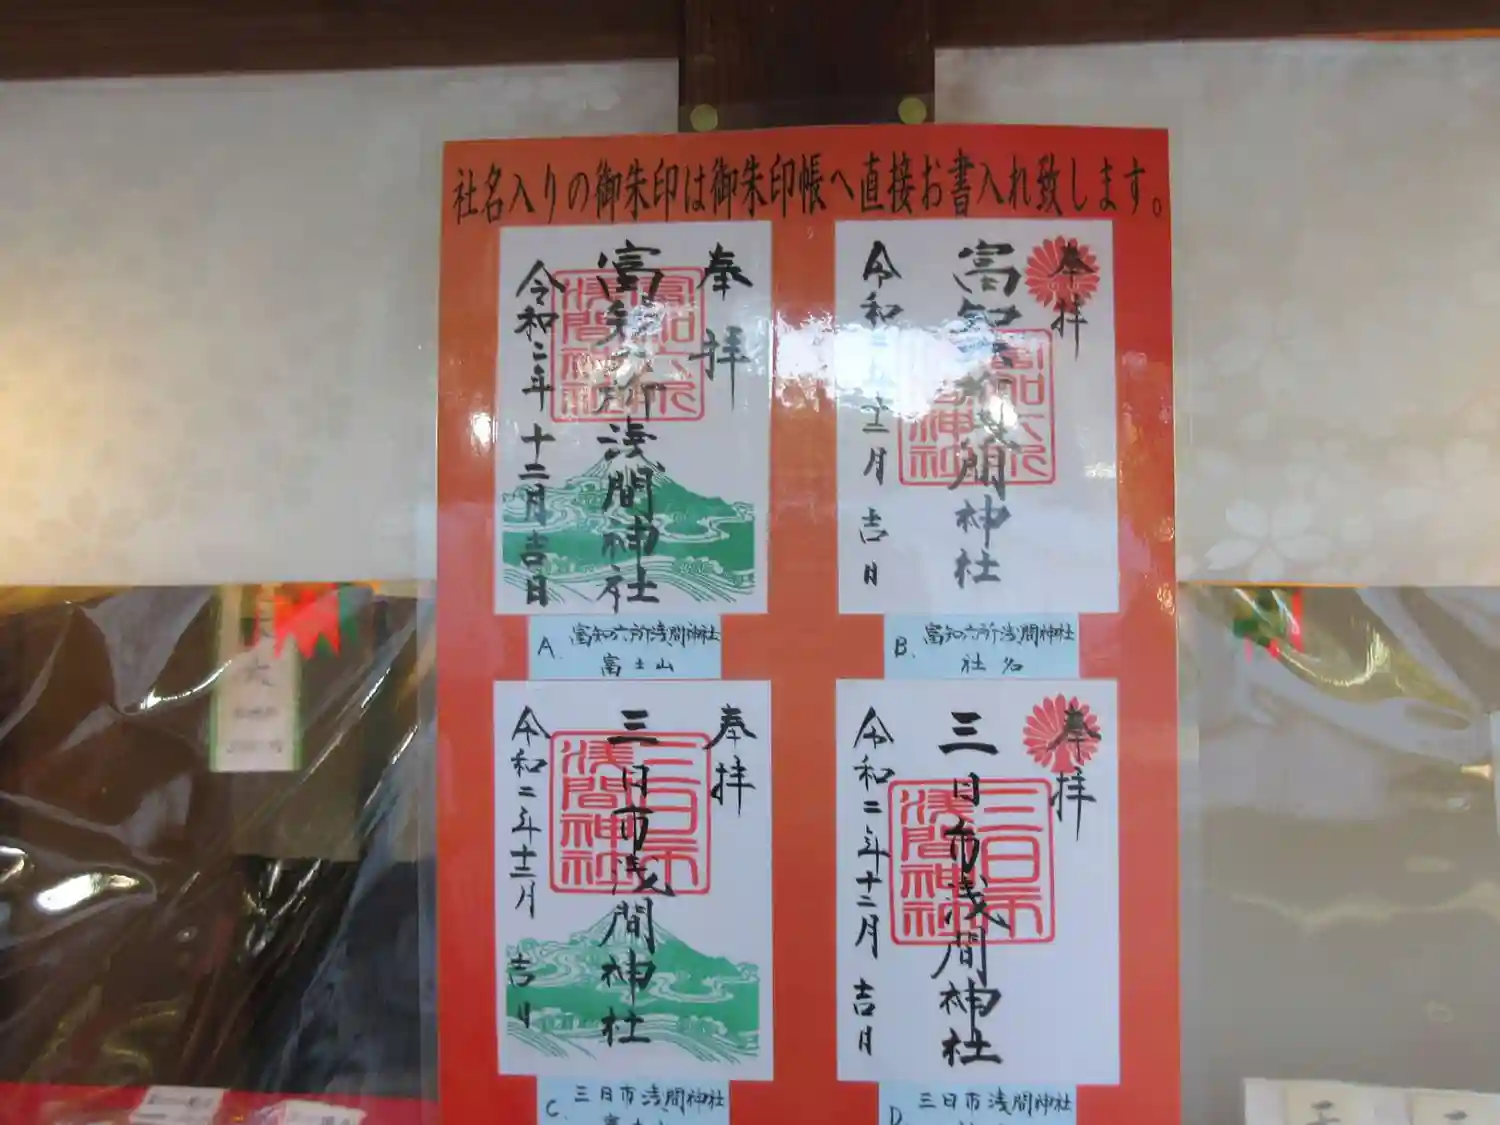 社名入りの御朱印は御朱印帳へ直接お書入れ致します。
奉拝
富知六所浅間神社
令和二年十二月吉日
富知六所
浅間神社
A. 富知六所浅間神社
富士山
奉拝
富知六所浅間神社
令和二年十二月吉日
富知六所
浅間神社
B. 富知六所浅間神社
社名
奉拝
三日市浅間神社
令和二年十二月吉日
三日市
浅間神社
C. 三日市浅間神社
奉拝
三日市浅間神社
令和二年十二月吉日
三日市
浅間神社
D 三日市浅間神社